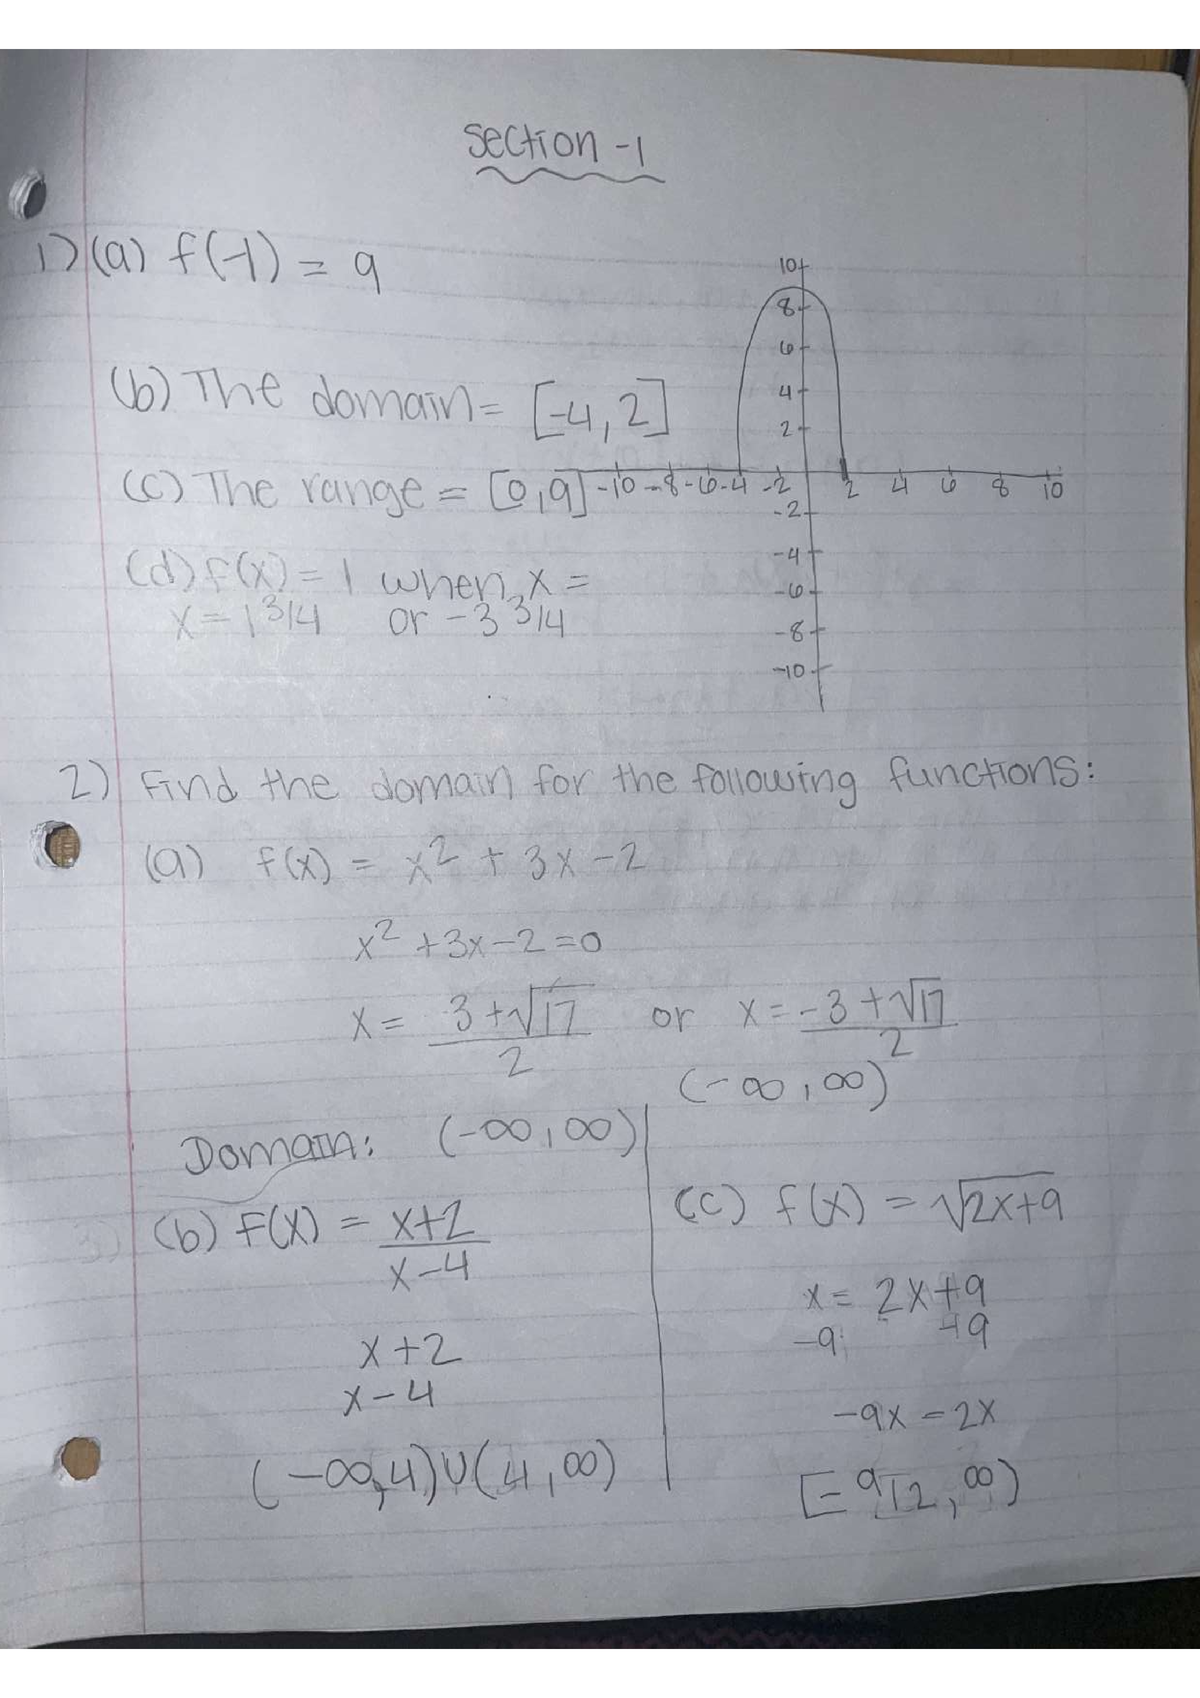 Section -1
1) (a) f(-1) = 9
(b) The domain = [-4, 2]
(c) The range = [0, 9]
(d) f(x) = 1 when, x =
x = 1 3/4 or -3 3/4
10
8
6
4
2
-10 -8 -6 -4 -2 2 4 6 8 10
-2
-4
-6
-8
-10
2) Find the domain for the following functions:
(a) f(x) = x² + 3x - 2
x² + 3x - 2 = 0
x = 3 + √17 / 2 or x = -3 + √17 / 2
(-∞, ∞)
Domain: (-∞, ∞)
(b) f(x) = x+2 / x-4
x + 2
x - 4
(-∞, 4) ∪ (4, ∞)
(c) f(x) = √2x+9
x = 2x + 9
-9 +9
-9x = 2x
[-9/2, ∞)